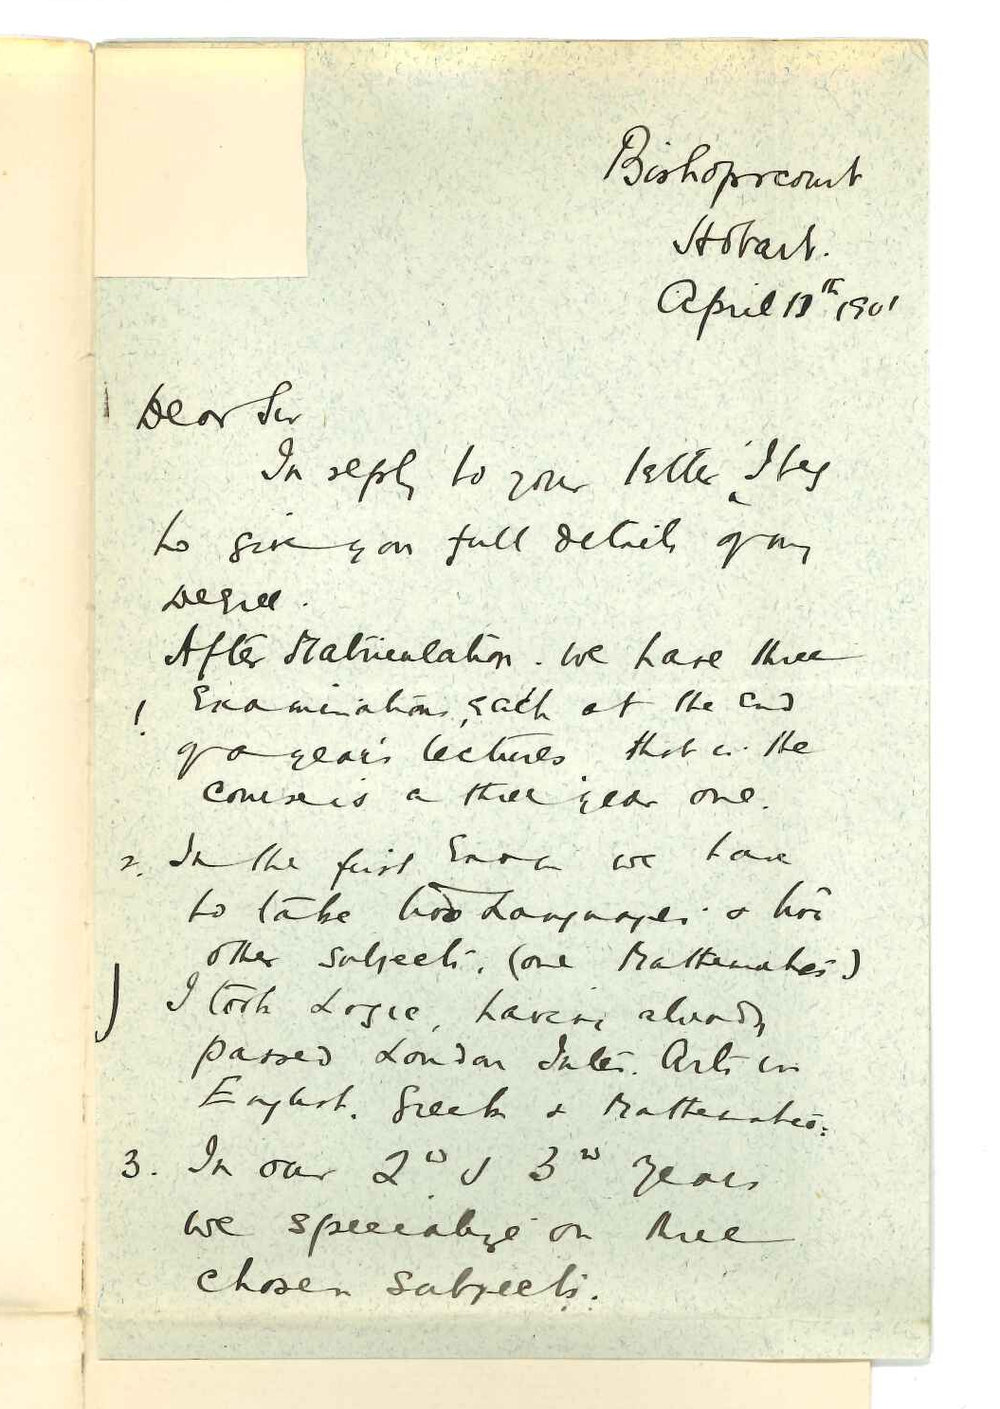 Bishopscourt
Hobart.
April 11th 1901
Dear Sir
In reply to your letter I beg
to give you full details of my
Degree.
After Matriculation. we have three
1. Examinations, each at the end
of a year's lectures that is the
course is a three year one.
2. In the first Exam we have
to take two Languages & two
other subjects. (one Mathematics)
I took Logic, having already
passed London Inter. Arts in
English. Greek & Mathematics.
3. In our 2nd & 3rd years
we specialize on three
chosen subjects.